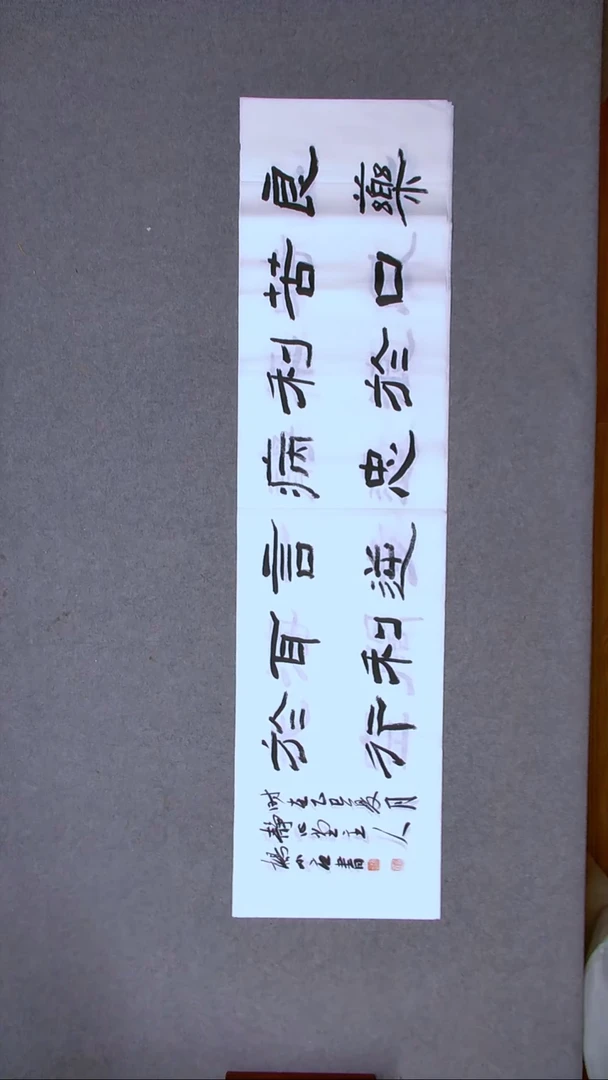 良藥
苦口
利於
病忠
言逆
耳利
於行
時在乙巳夏月
靜心堂主人
楊小書